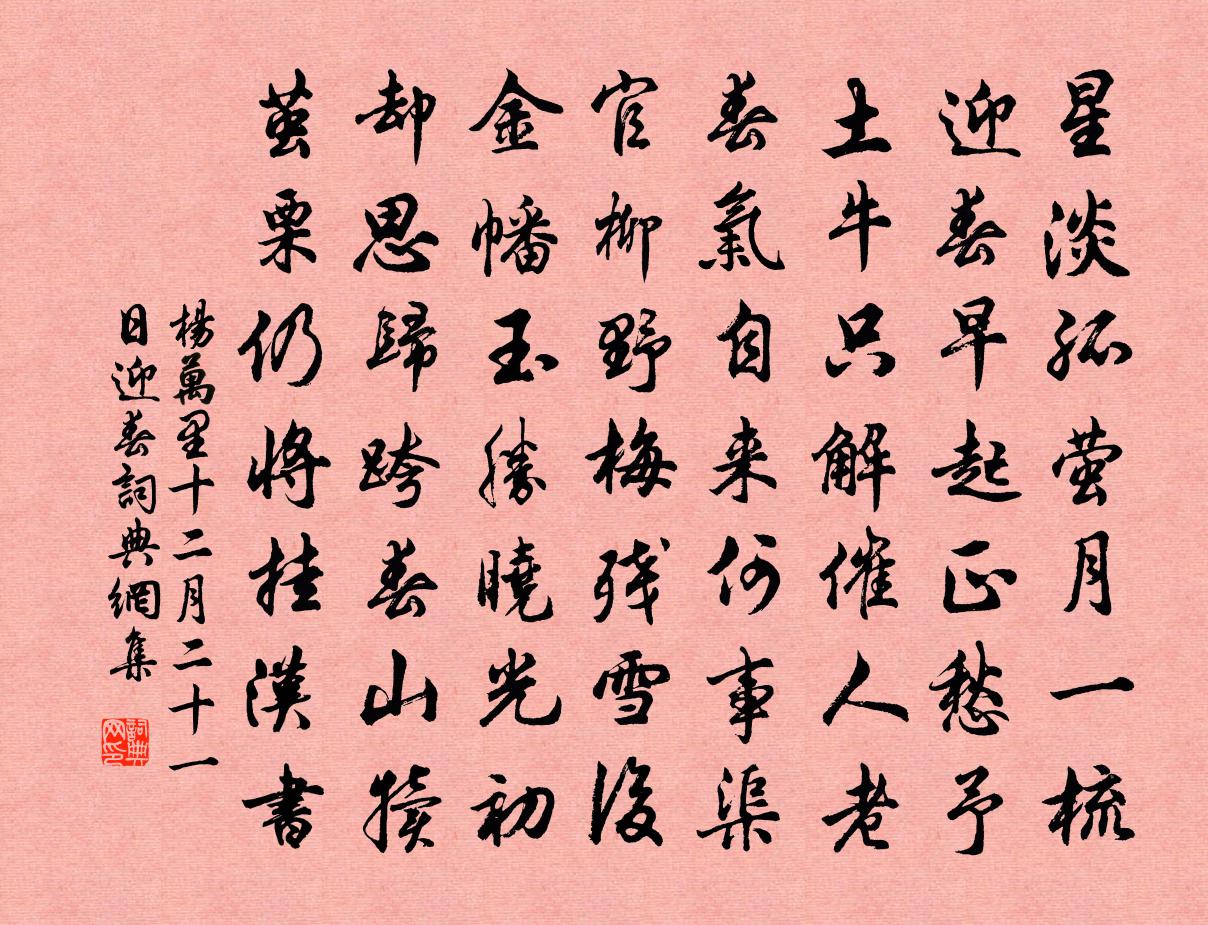 星淡孤萤月一梳
迎春早起正愁予
土牛只解催人老
春氣自来何事渠
官柳野梅残雪後
金幡玉勝曉光初
却思歸跨春山犢
茧栗仍将挂漢書
楊萬里十二月二十一
日迎春詞典網集
詞典
网印